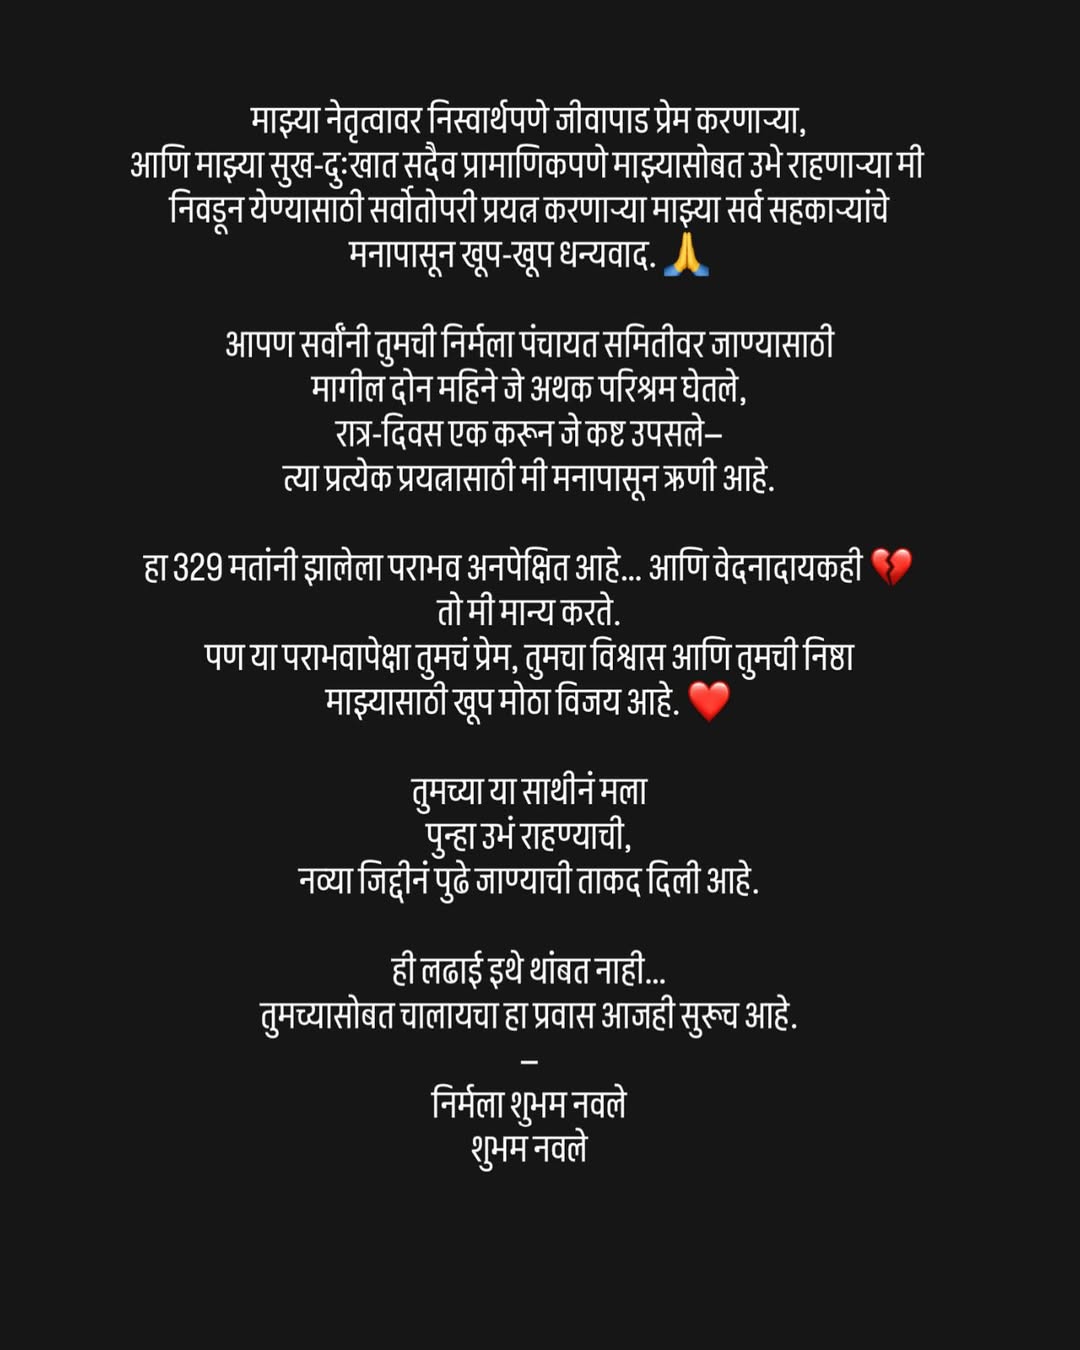 माझ्या नेतृत्वावर निस्वार्थपणे जीवापाड प्रेम करणाऱ्या,
आणि माझ्या सुख-दुःखात सदैव प्रामाणिकपणे माझ्यासोबत उभे राहणाऱ्या मी
निवडून येण्यासाठी सर्वोतोपरी प्रयत्न करणाऱ्या माझ्या सर्व सहकाऱ्यांचे
मनापासून खूप-खूप धन्यवाद. 🙏
आपण सर्वांनी तुमची निर्मला पंचायत समितीवर जाण्यासाठी
मागील दोन महिने जे अथक परिश्रम घेतले,
रात्र-दिवस एक करून जे कष्ट उपसले–
त्या प्रत्येक प्रयत्नासाठी मी मनापासून ऋणी आहे.
हा 329 मतांनी झालेला पराभव अनपेक्षित आहे... आणि वेदनादायकही 💔
तो मी मान्य करते.
पण या पराभवापेक्षा तुमचं प्रेम, तुमचा विश्वास आणि तुमची निष्ठा
माझ्यासाठी खूप मोठा विजय आहे. ❤️
तुमच्या या साथीनं मला
पुन्हा उभं राहण्याची,
नव्या जिद्दीनं पुढे जाण्याची ताकद दिली आहे.
ही लढाई इथे थांबत नाही...
तुमच्यासोबत चालायचा हा प्रवास आजही सुरूच आहे.
–
निर्मला शुभम नवले
शुभम नवले